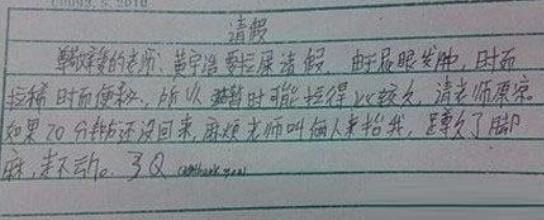 请假
尊敬的老师、黄宇浩要拉屎请假。由于屁眼发肿，时而
拉稀时而便秘，所以暂时可能拉得比较久，请老师原谅。
如果20分钟还没回来，麻烦老师叫俩人来抬我，蹲久了脚
麻，走不动。3Q